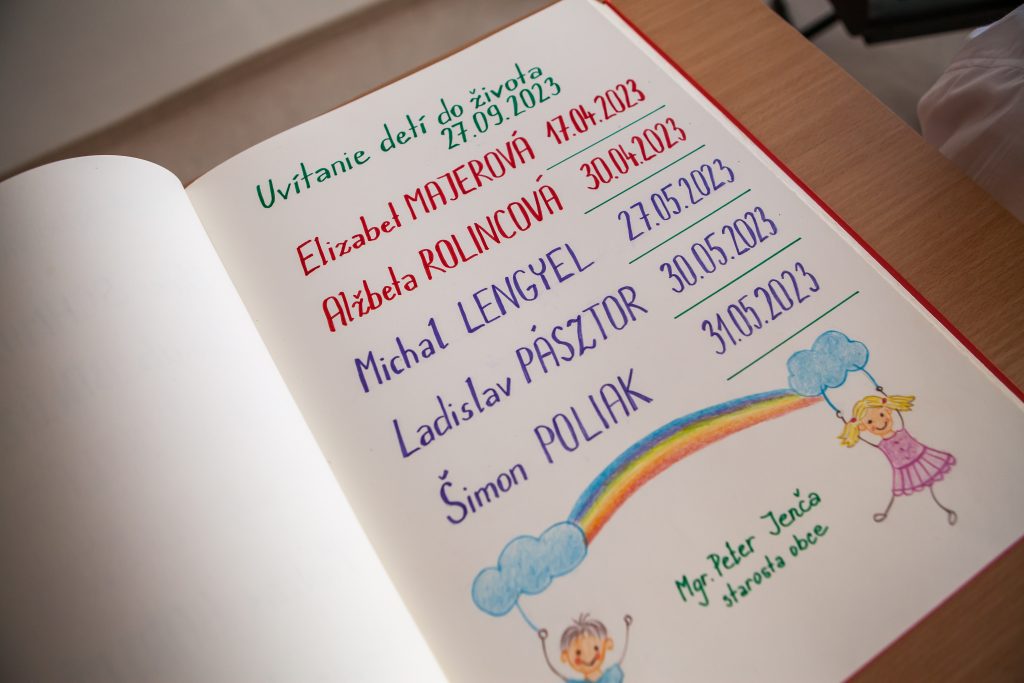 Uvítanie detí do života
27.09.2023
Elizabet MAJEROVÁ 17.04.2023
Alžbeta ROLINCOVÁ 30.04.2023
Michal LENGYEL 27.05.2023
Ladislav PÁSZTOR 30.05.2023
Šimon POLIAK 31.05.2023
Mgr. Peter Jenča
starosta obce